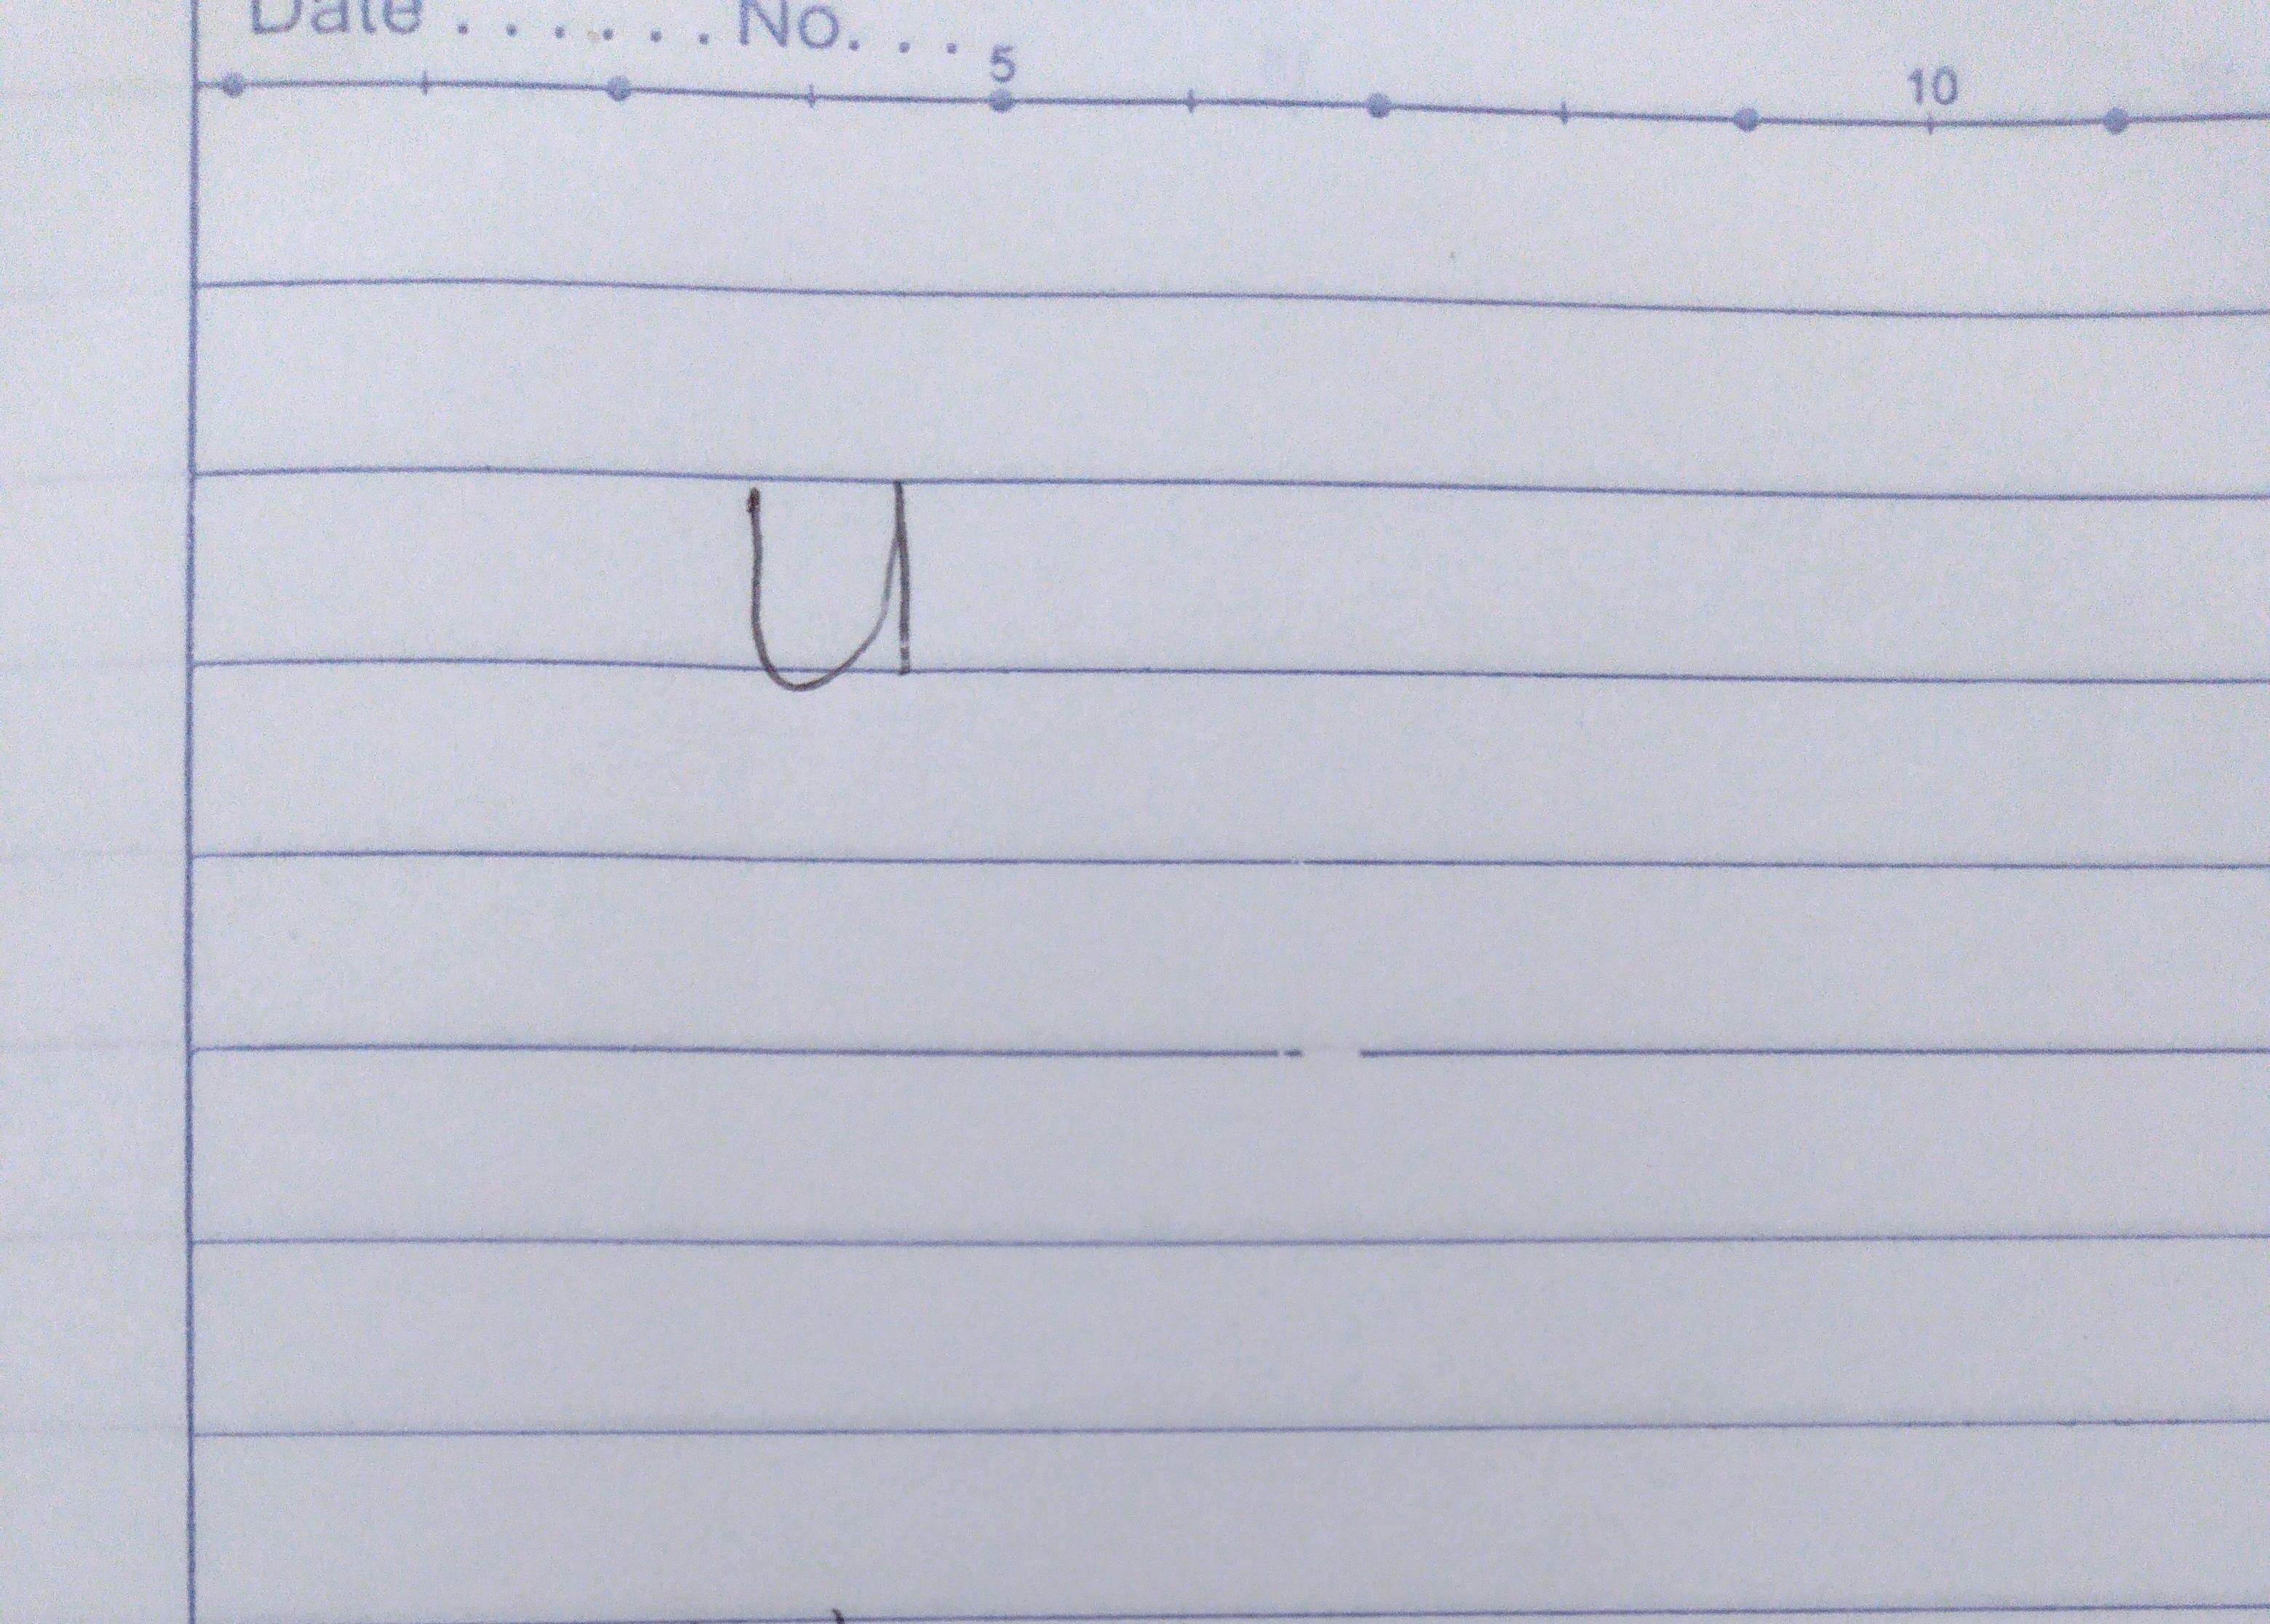 Date . . . . . . No. . . .
5 10
u